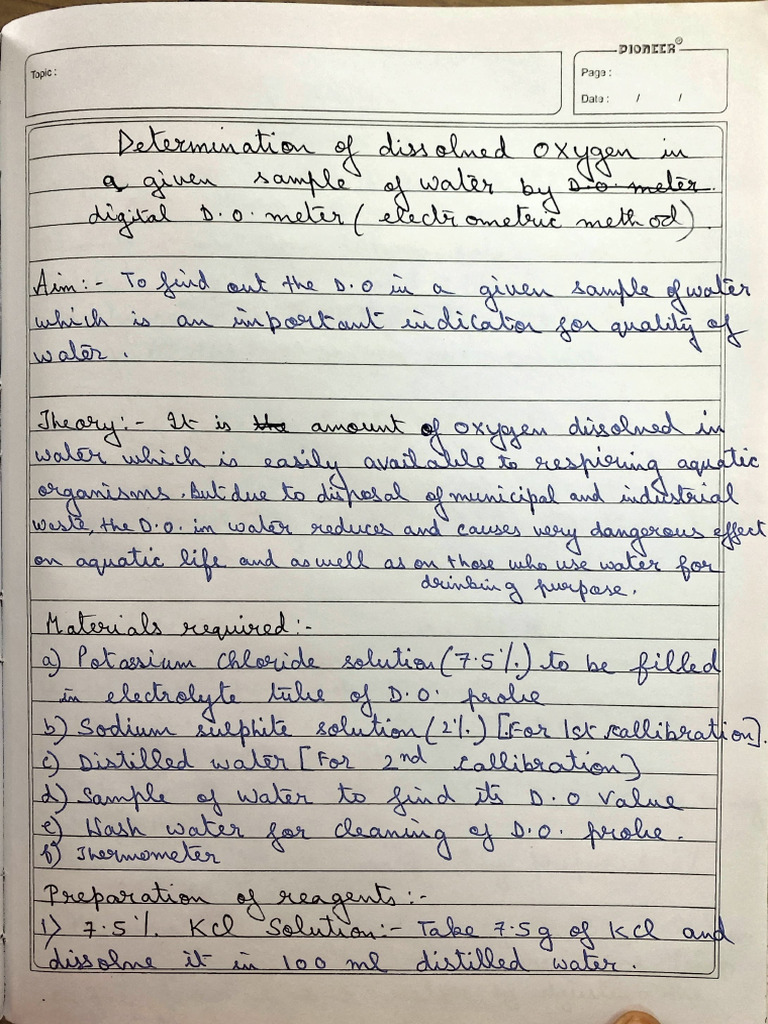 PIONEER®
Topic:
Page:
Date: / /
Determination of dissolved oxygen in
a given sample of water by D.O. meter.
digital D.O. meter (electrometric method).
Aim:- To find out the D.O in a given sample of water
which is an important indicator for quality of
water.
Theory:- It is the amount of oxygen dissolved in
water which is easily available to respiring aquatic
organisms. But due to disposal of municipal and industrial
waste, the D.O. in water reduces and causes very dangerous effect
on aquatic life and as well as on those who use water for
drinking purpose.
Materials required:-
a) Potassium chloride solution (7.5%.) to be filled
in electrolyte tube of D.O. probe
b) Sodium sulphite solution (2%.) [For 1st callibration].
c) Distilled water [For 2nd callibration]
d) Sample of water to find its D.O value
e) Wash water for cleaning of D.O. probe.
f) Thermometer
Preparation of reagents:-
1) 7.5%. KCl Solution:- Take 7.5g of KCl and
dissolve it in 100 ml distilled water.